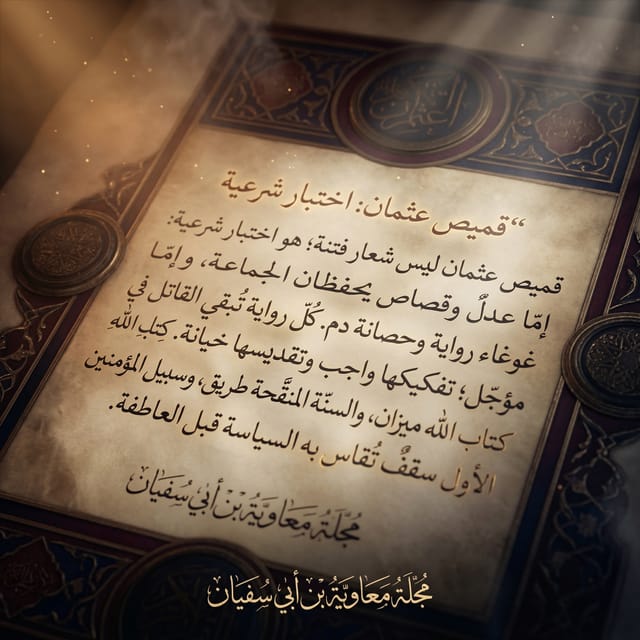 “قميص عثمان: اختبار شرعية
قميص عثمان ليس شعار فتنة؛ هو اختبار شرعية:
إمّا عدلٌ وقصاص يحفظان الجماعة، وإمّا
غوغاء رواية وحصانة دم. كُلّ رواية تُبقي القاتل في
مؤجّل؛ تفكيكها واجب وتقديسها خيانة. كِتٰبِ اللّٰهِ
كتاب الله ميزان، والسنّة المنقَّحة طريق، وسبيل المؤمنين
الأول سقفٌ تُقاس به السياسة قبل العاطفة.
مُجَلَّةُ مَعَاوِيَّةُ بْنِ أَبِي سُفْيَان
مُجَلَّةُ مَعَاوِيَّةُ بْنِ أَبِي سُفْيَان